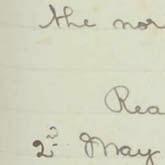 the nor
Rea
2ⁿᵈ May